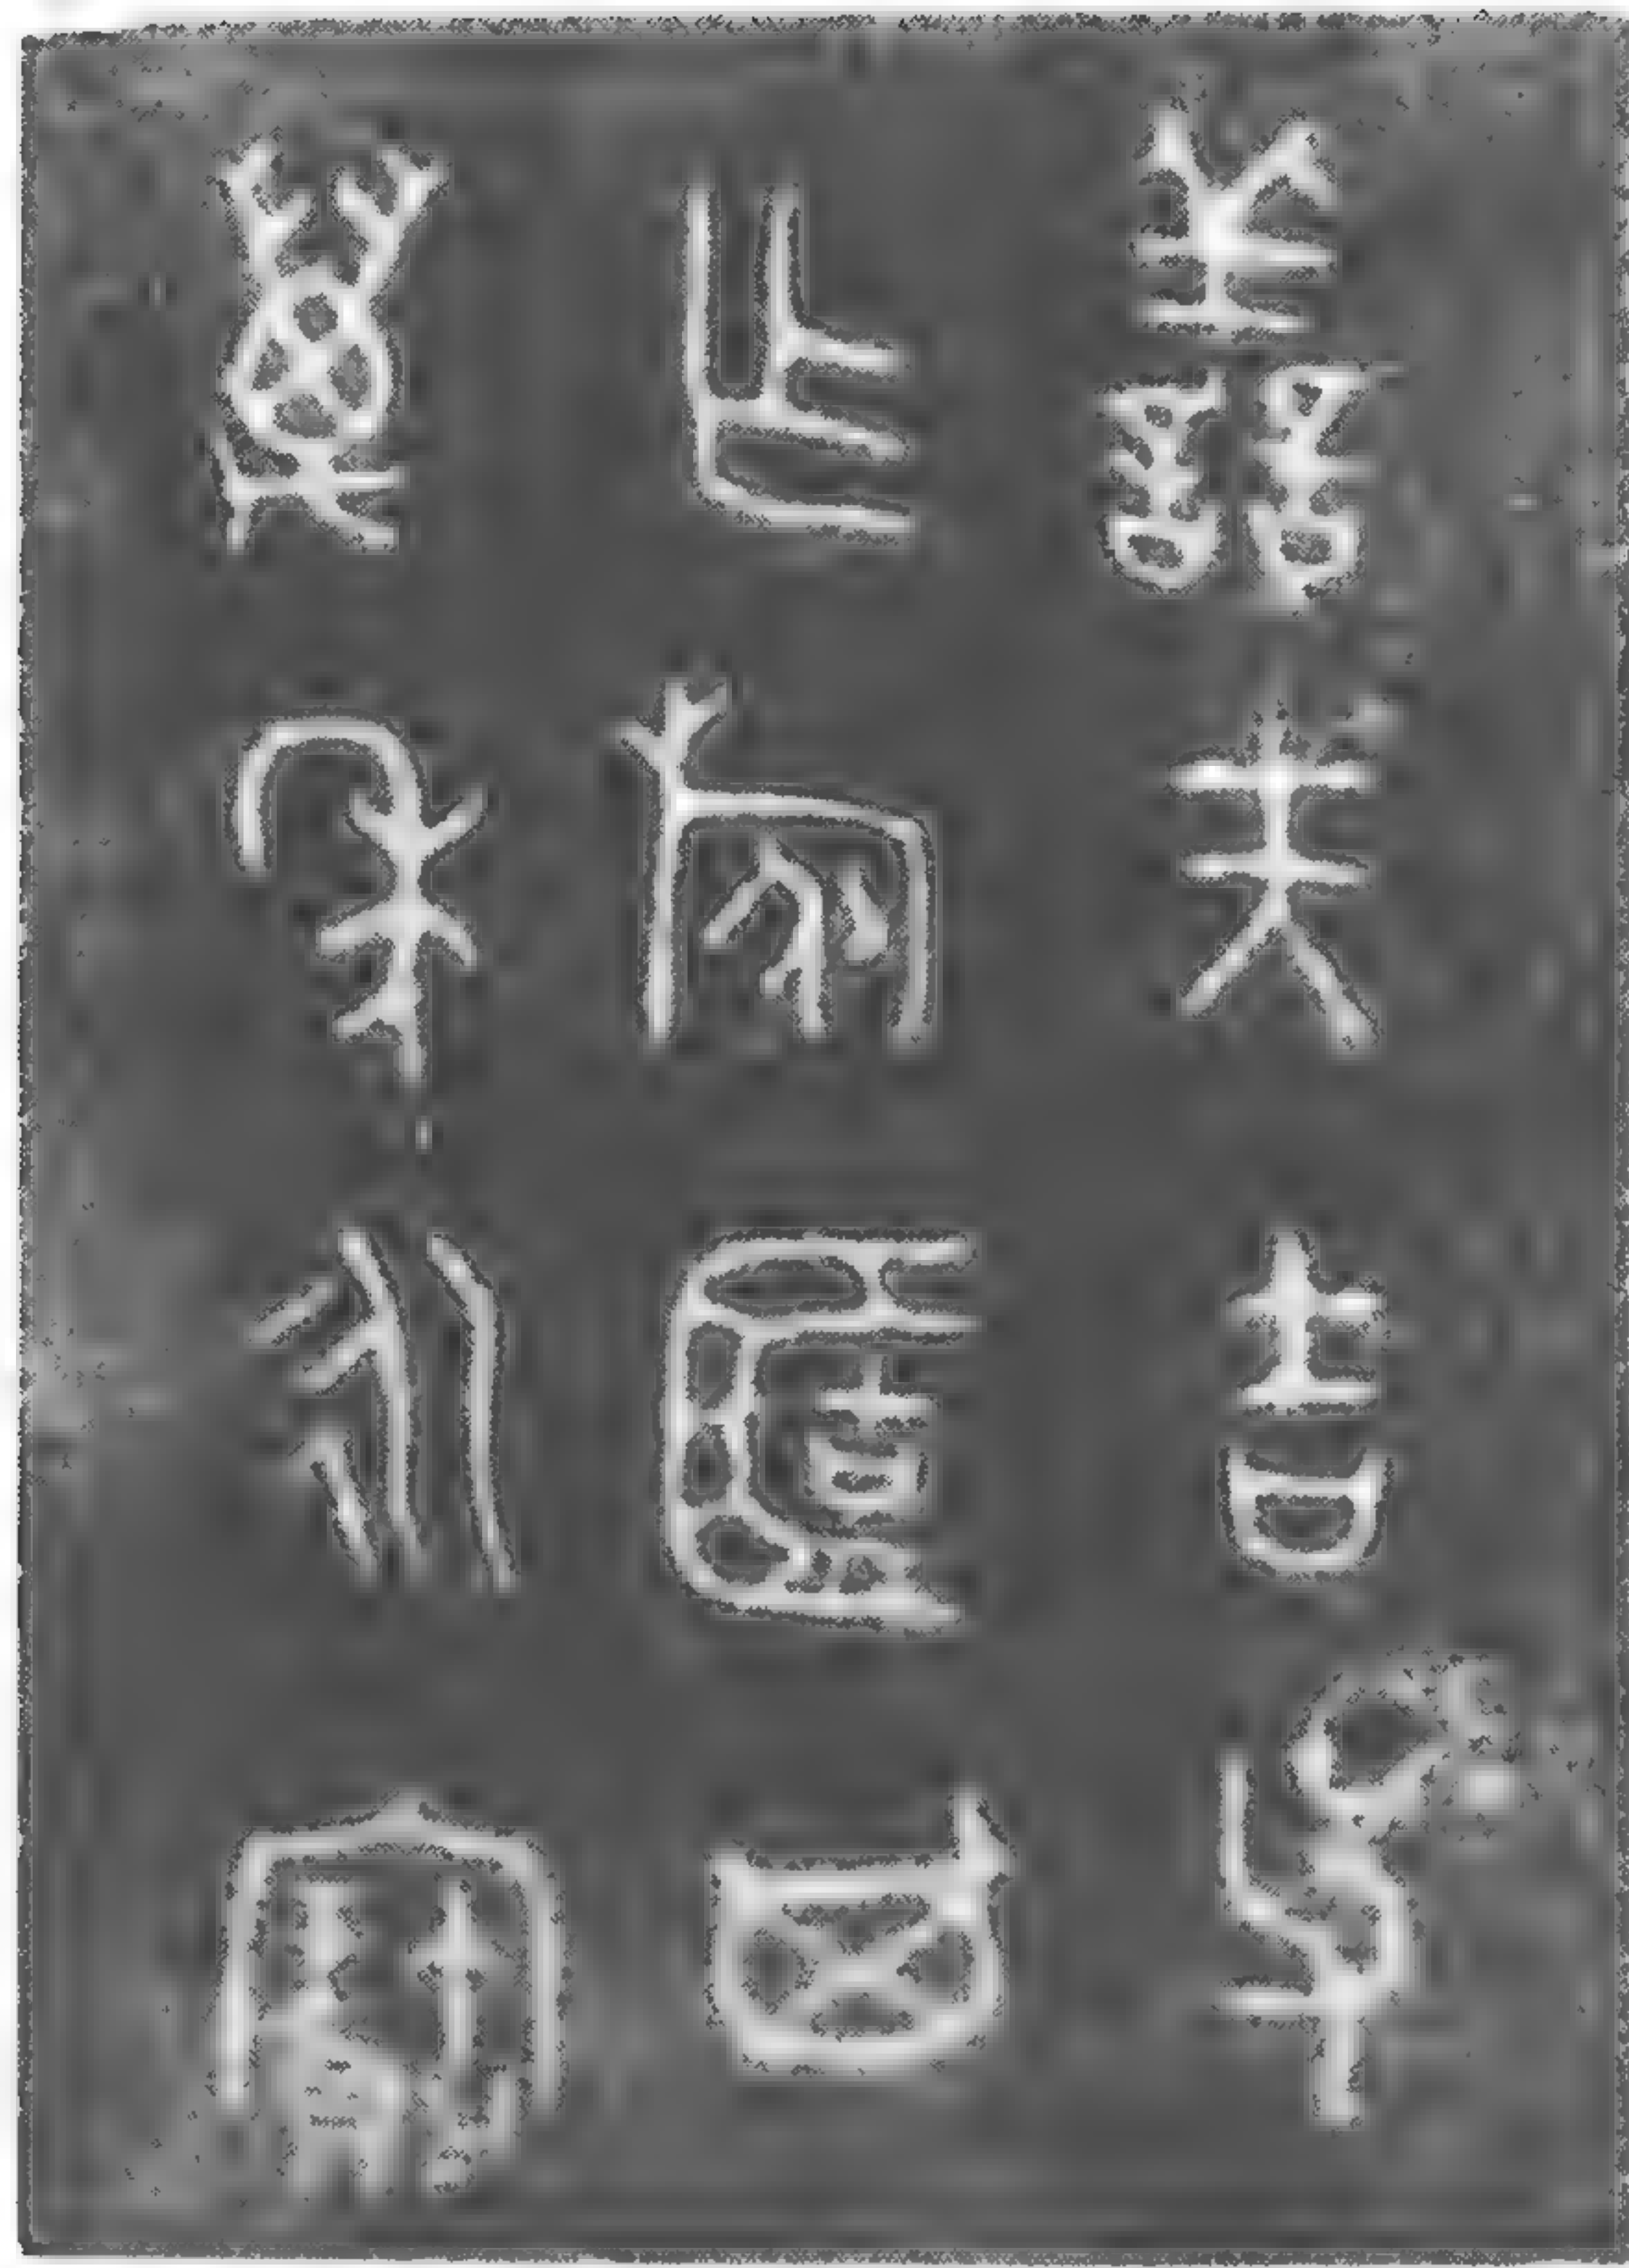 善夫吉父
乍旅𠤳其
萬年永寶